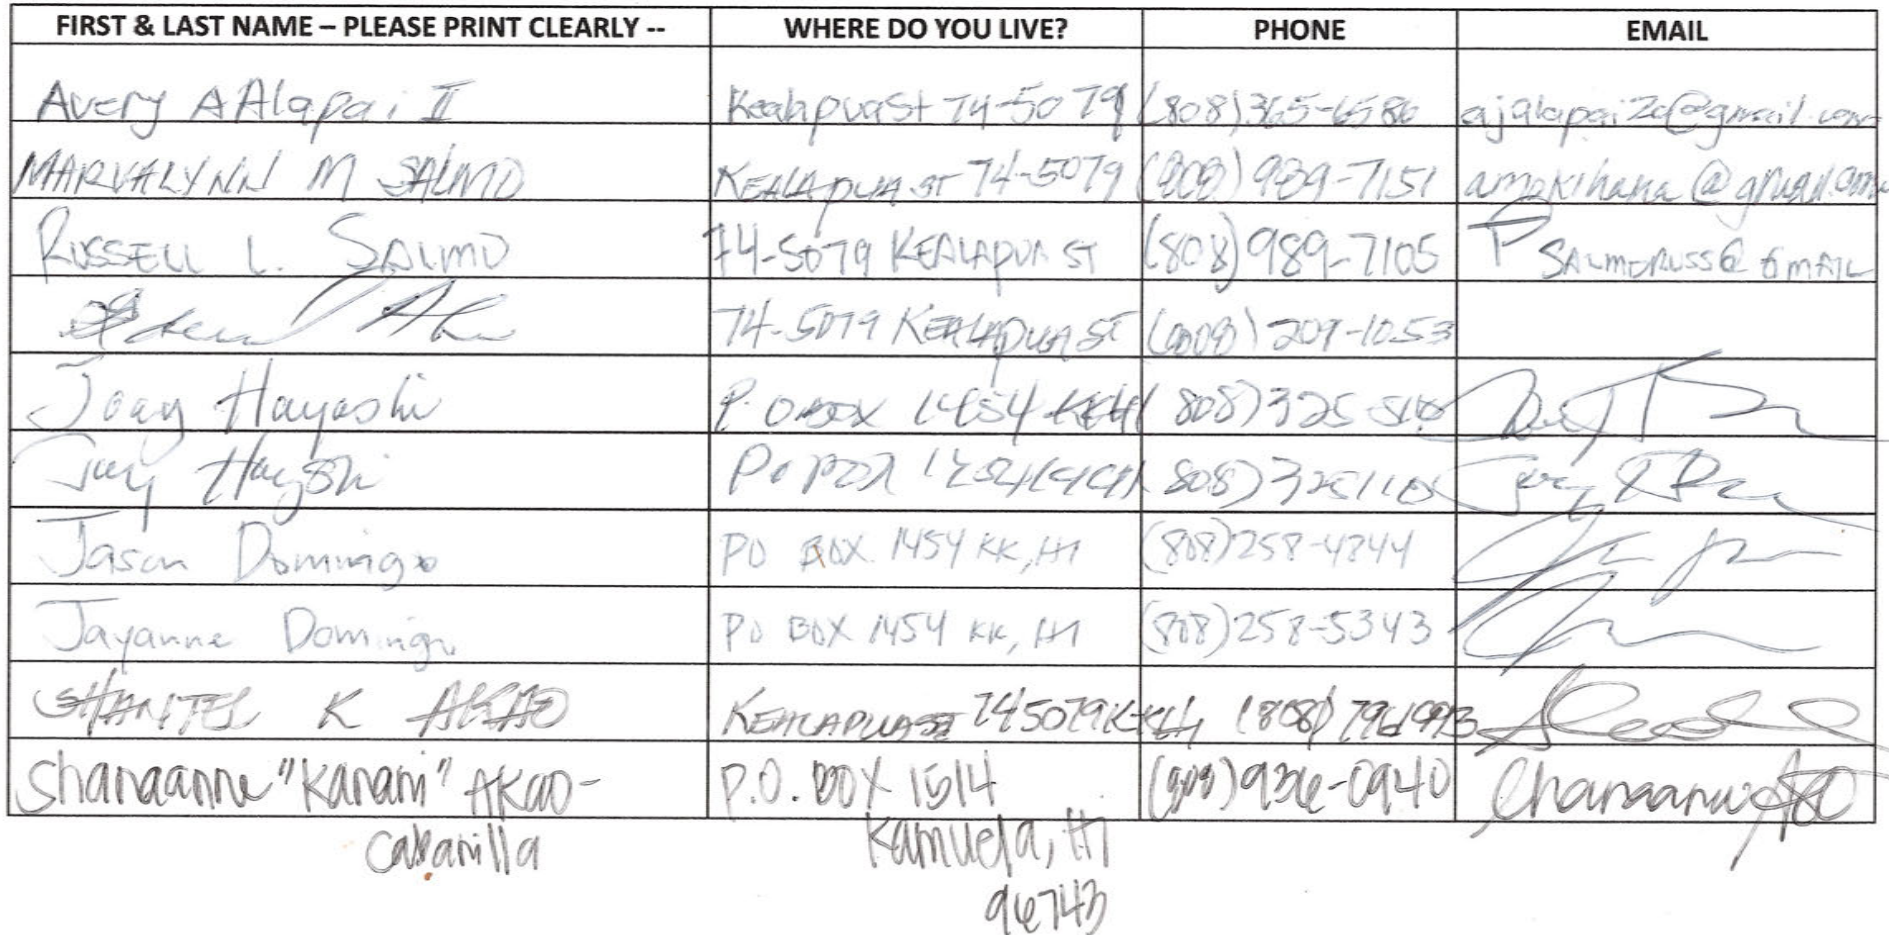 FIRST & LAST NAME – PLEASE PRINT CLEARLY -- WHERE DO YOU LIVE? PHONE EMAIL
Avery A Alapai II Kealapua St 74-5079 (808)365-6586 ajalapai2c@gmail.com
MARVALYNN M SALMO KEALAPUA ST 74-5079 (808) 989-7151 amakihana@gmail.com
RUSSELL L. SALMO 74-5079 KEALAPUA ST (808) 989-7105 SALMORUSS@GMAIL
74-5079 KEALAPUA ST (808) 209-1053
Joay Hayashi P.O BOX 1454 808)325-
Hayashi Po Box 1454 808)325
Jason Domingo PO BOX 1454 KK, HI (808)258-4244
Jayanne Domingo PO BOX 1454 KK, HI (808)258-5343
SHANTEL K AKAO KEALAPUA ST 745079 (808)
Shanaanne "Kanani" AKAO- P.O. BOX 1514 (808)936-0940
Cabanilla Kamuela, HI
96743